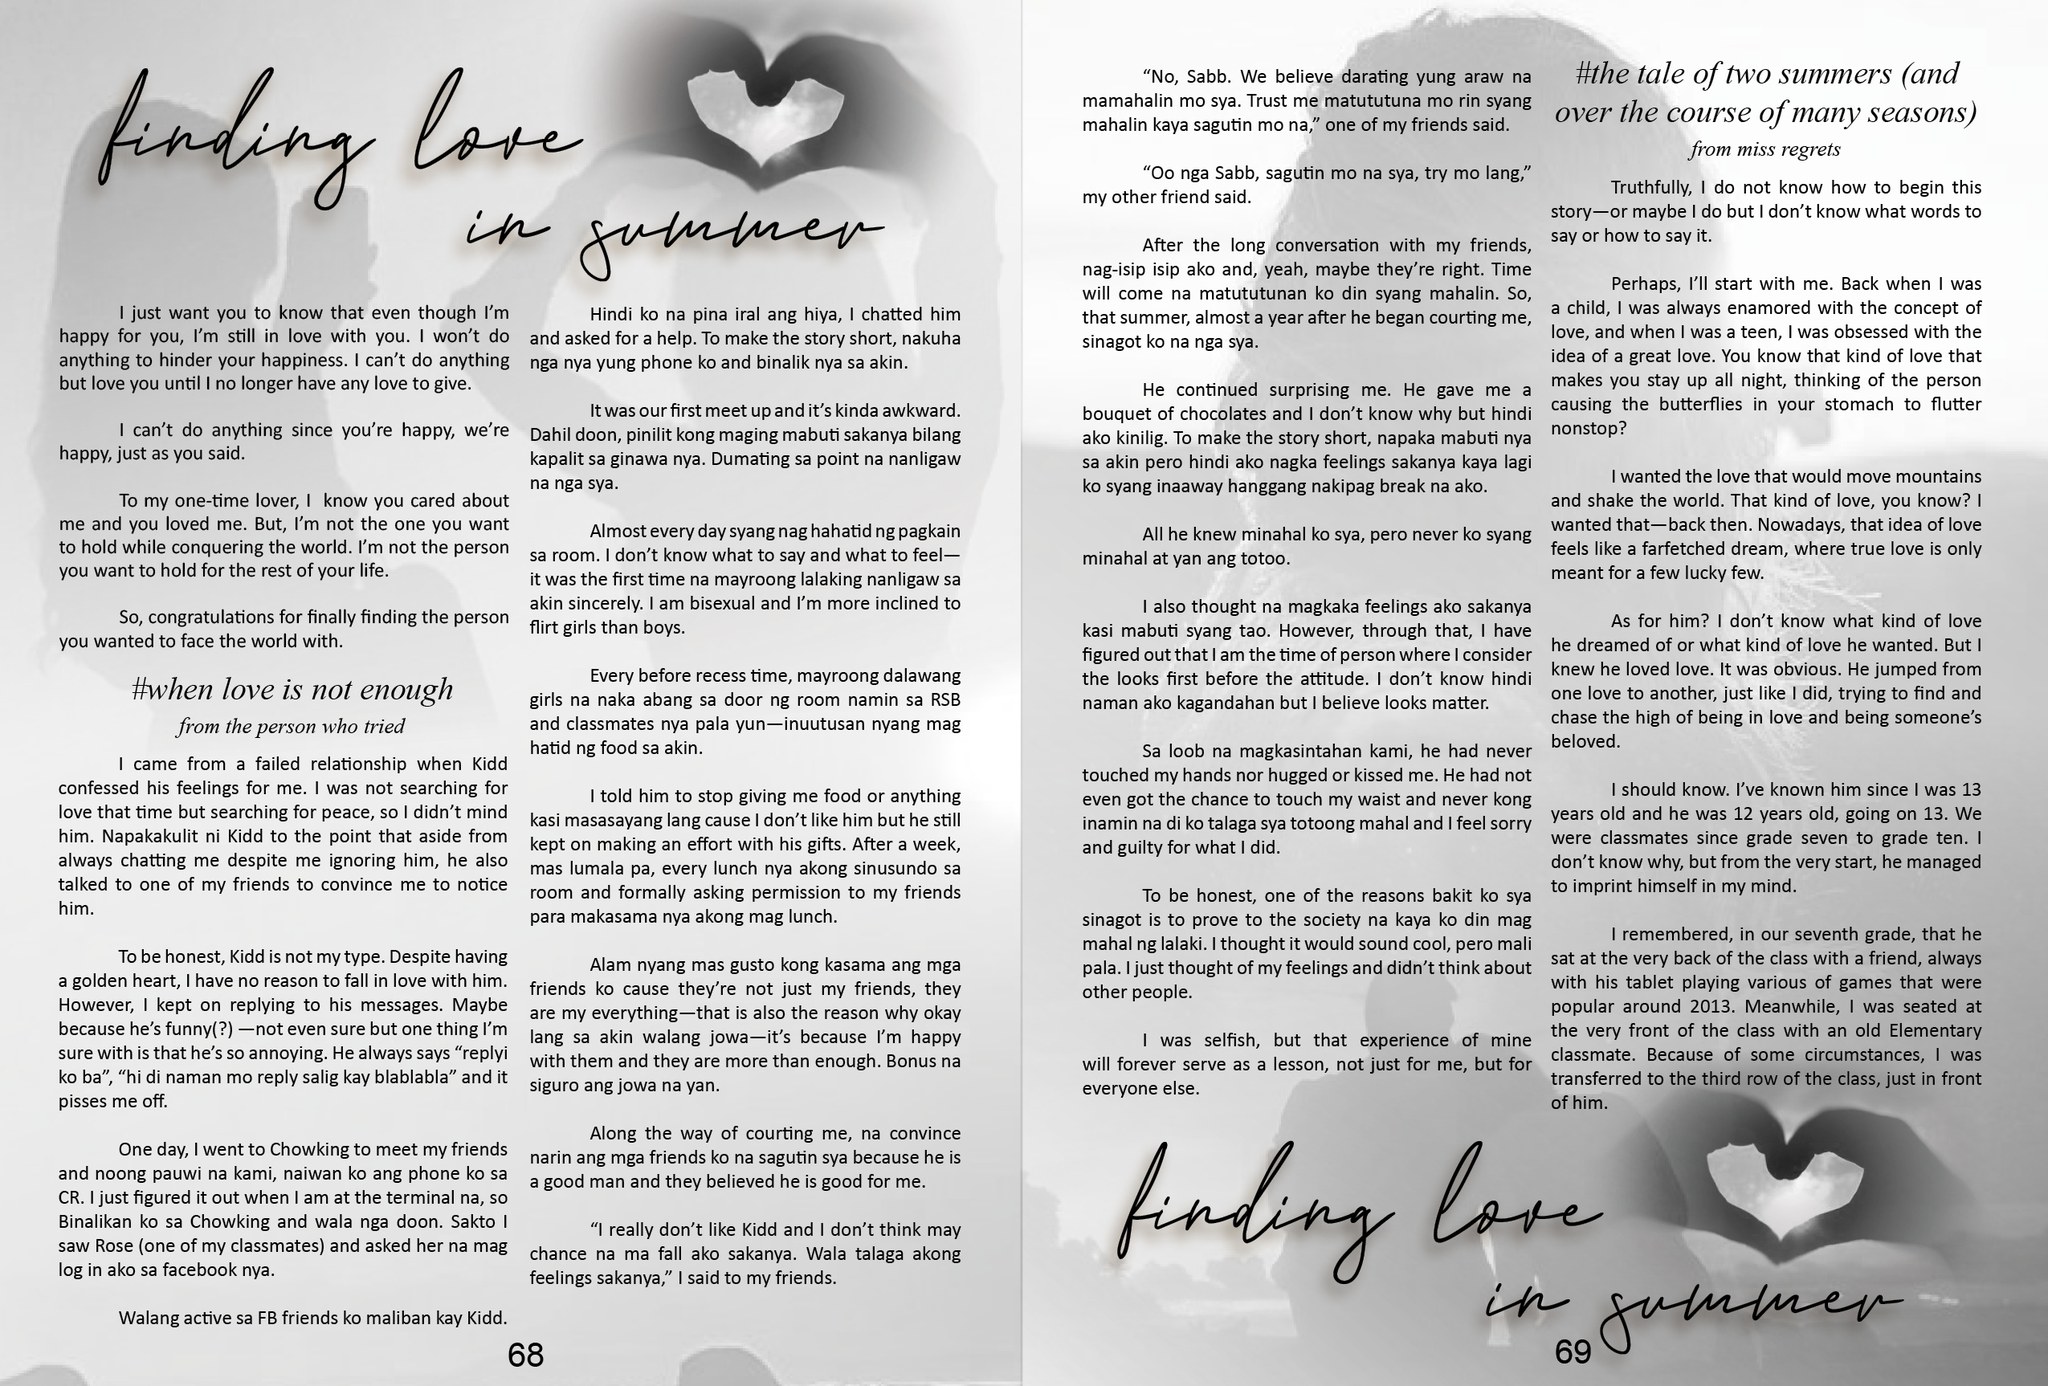 finding love
in summer
I just want you to know that even though I'm
happy for you, I'm still in love with you. I won't do
anything to hinder your happiness. I can't do anything
but love you until I no longer have any love to give.
I can't do anything since you're happy, we're
happy, just as you said.
To my one-time lover, I know you cared about
me and you loved me. But, I'm not the one you want
to hold while conquering the world. I'm not the person
you want to hold for the rest of your life.
So, congratulations for finally finding the person
you wanted to face the world with.
#when love is not enough
from the person who tried
I came from a failed relationship when Kidd
confessed his feelings for me. I was not searching for
love that time but searching for peace, so I didn't mind
him. Napakakulit ni Kidd to the point that aside from
always chatting me despite me ignoring him, he also
talked to one of my friends to convince me to notice
him.
To be honest, Kidd is not my type. Despite having
a golden heart, I have no reason to fall in love with him.
However, I kept on replying to his messages. Maybe
because he's funny(?) —not even sure but one thing I'm
sure with is that he's so annoying. He always says “replyi
ko ba”, “hi di naman mo reply salig kay blablabla” and it
pisses me off.
One day, I went to Chowking to meet my friends
and noong pauwi na kami, naiwan ko ang phone ko sa
CR. I just figured it out when I am at the terminal na, so
Binalikan ko sa Chowking and wala nga doon. Sakto I
saw Rose (one of my classmates) and asked her na mag
log in ako sa facebook nya.
Walang active sa FB friends ko maliban kay Kidd.
Hindi ko na pina iral ang hiya, I chatted him
and asked for a help. To make the story short, nakuha
nga nya yung phone ko and binalik nya sa akin.
It was our first meet up and it's kinda awkward.
Dahil doon, pinilit kong maging mabuti sakanya bilang
kapalit sa ginawa nya. Dumating sa point na nanligaw
na nga sya.
Almost every day syang nag hahatid ng pagkain
sa room. I don't know what to say and what to feel—
it was the first time na mayroong lalaking nanligaw sa
akin sincerely. I am bisexual and I'm more inclined to
flirt girls than boys.
Every before recess time, mayroong dalawang
girls na naka abang sa door ng room namin sa RSB
and classmates nya pala yun—inuutusan nyang mag
hatid ng food sa akin.
I told him to stop giving me food or anything
kasi masasayang lang cause I don't like him but he still
kept on making an effort with his gifts. After a week,
mas lumala pa, every lunch nya akong sinusundo sa
room and formally asking permission to my friends
para makasama nya akong mag lunch.
Alam nyang mas gusto kong kasama ang mga
friends ko cause they're not just my friends, they
are my everything—that is also the reason why okay
lang sa akin walang jowa—it's because I'm happy
with them and they are more than enough. Bonus na
siguro ang jowa na yan.
Along the way of courting me, na convince
narin ang mga friends ko na sagutin sya because he is
a good man and they believed he is good for me.
“I really don't like Kidd and I don't think may
chance na ma fall ako sakanya. Wala talaga akong
feelings sakanya,” I said to my friends.
68
“No, Sabb. We believe darating yung araw na
mamahalin mo sya. Trust me matututuna mo rin syang
mahalin kaya sagutin mo na,” one of my friends said.
“Oo nga Sabb, sagutin mo na sya, try mo lang,”
my other friend said.
After the long conversation with my friends,
nag-isip isip ako and, yeah, maybe they're right. Time
will come na matututunan ko din syang mahalin. So,
that summer, almost a year after he began courting me,
sinagot ko na nga sya.
He continued surprising me. He gave me a
bouquet of chocolates and I don't know why but hindi
ako kinilig. To make the story short, napaka mabuti nya
sa akin pero hindi ako nagka feelings sakanya kaya lagi
ko syang inaaway hanggang nakipag break na ako.
All he knew minahal ko sya, pero never ko syang
minahal at yan ang totoo.
I also thought na magkaka feelings ako sakanya
kasi mabuti syang tao. However, through that, I have
figured out that I am the time of person where I consider
the looks first before the attitude. I don't know hindi
naman ako kagandahan but I believe looks matter.
Sa loob na magkasintahan kami, he had never
touched my hands nor hugged or kissed me. He had not
even got the chance to touch my waist and never kong
inamin na di ko talaga sya totoong mahal and I feel sorry
and guilty for what I did.
To be honest, one of the reasons bakit ko sya
sinagot is to prove to the society na kaya ko din mag
mahal ng lalaki. I thought it would sound cool, pero mali
pala. I just thought of my feelings and didn't think about
other people.
I was selfish, but that experience of mine
will forever serve as a lesson, not just for me, but for
everyone else.
#the tale of two summers (and
over the course of many seasons)
from miss regrets
Truthfully, I do not know how to begin this
story—or maybe I do but I don't know what words to
say or how to say it.
Perhaps, I'll start with me. Back when I was
a child, I was always enamored with the concept of
love, and when I was a teen, I was obsessed with the
idea of a great love. You know that kind of love that
makes you stay up all night, thinking of the person
causing the butterflies in your stomach to flutter
nonstop?
I wanted the love that would move mountains
and shake the world. That kind of love, you know? I
wanted that—back then. Nowadays, that idea of love
feels like a farfetched dream, where true love is only
meant for a few lucky few.
As for him? I don't know what kind of love
he dreamed of or what kind of love he wanted. But I
knew he loved love. It was obvious. He jumped from
one love to another, just like I did, trying to find and
chase the high of being in love and being someone's
beloved.
I should know. I've known him since I was 13
years old and he was 12 years old, going on 13. We
were classmates since grade seven to grade ten. I
don't know why, but from the very start, he managed
to imprint himself in my mind.
I remembered, in our seventh grade, that he
sat at the very back of the class with a friend, always
with his tablet playing various of games that were
popular around 2013. Meanwhile, I was seated at
the very front of the class with an old Elementary
classmate. Because of some circumstances, I was
transferred to the third row of the class, just in front
of him.
finding love
in summer
69